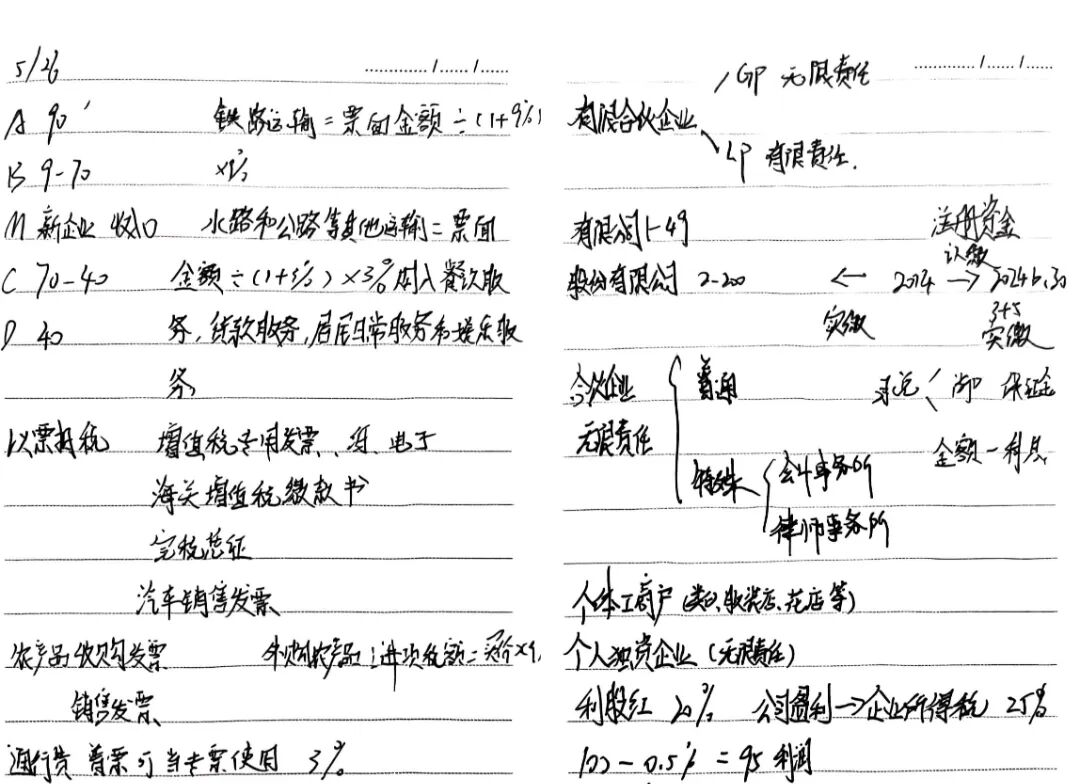 5/26
A 90' 铁路运输=票面金额÷(1+9%)
B 9-70 ×9%
M 新企业 水路和公路等其他运输=票面
C 70-40 金额÷(1+3%)×3% 购入餐饮服
D 40 务,贷款服务,居民日常服务和娱乐服
务
以票抵税 增值税专用发票、电子
海关增值税缴款书
完税凭证
汽车销售发票
农产品收购发票 外购农产品:进项税额=买价×9
销售发票
通行费 普票可当专票使用 3%
GP 无限责任
有限合伙企业
LP 有限责任.
有限公司1-49 注册资金
认缴
股份有限公司 2-200 ← 2014 → 2024 6.30
实缴 3+5
实缴
合伙企业 普通 保证金
无限责任 金额-利息
特殊 会计事务所
律师事务所
个体工商户 (服装店、花店等)
个人独资企业 (无限责任)
利股红 20% 公司盈利→企业所得税 25%
100-0.5% = 95 利润